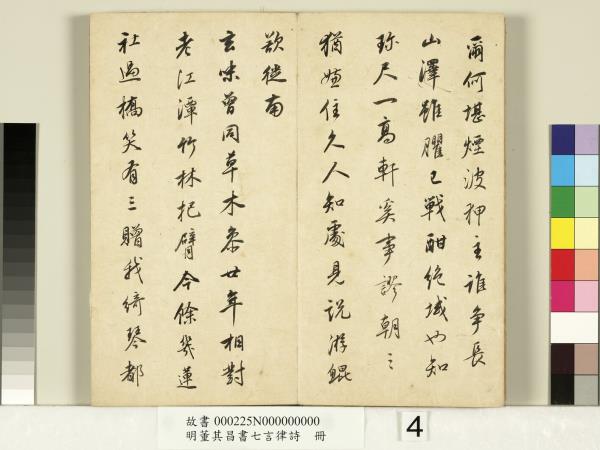 爾何堪煙波狎主誰爭長
山澤雖臞已戰酣絕域也知
珎尺一高軒奚事謬朝三
猶嫌住久人知處見說游鯤
欲徙南
玄味曾同草木參廿年相對
老江潭竹林把臂今餘幾蓮
社過橋笑有三贈我綺琴都
故書 000225N000000000
明董其昌書七言律詩 冊
4